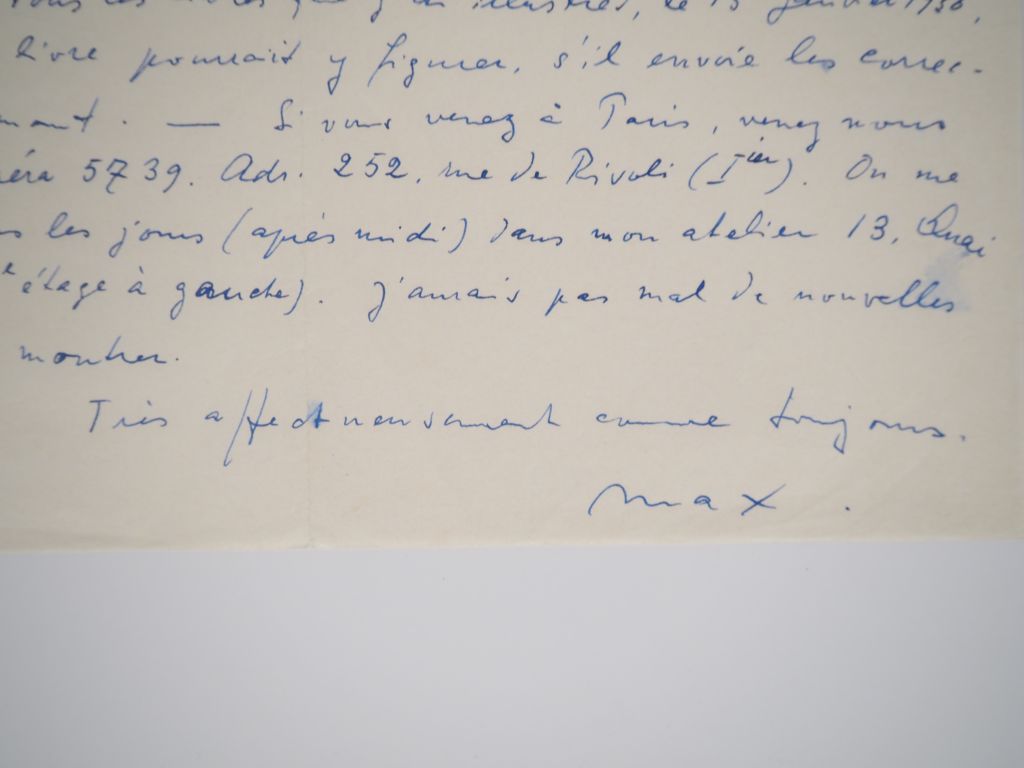 tous les livres que j'ai illustrés, le 15 janvier 1950,
livre pourrait y figurer, s'il envoie les correc-
mant. — Si vous venez à Paris, venez nous
éra 5739. Adr. 252, rue de Rivoli (Ier). On me
s les jours (après midi) dans mon atelier 13, Quai
e étage à gauche). J'aurais pas mal de nouvelles
montrer.
Très affectueusement comme toujours.
max.